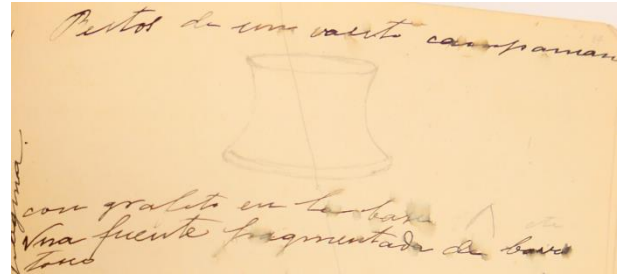 Restos de un vasito campaman
con grafito en la base
Una fuente fragmentada de barro
tosco